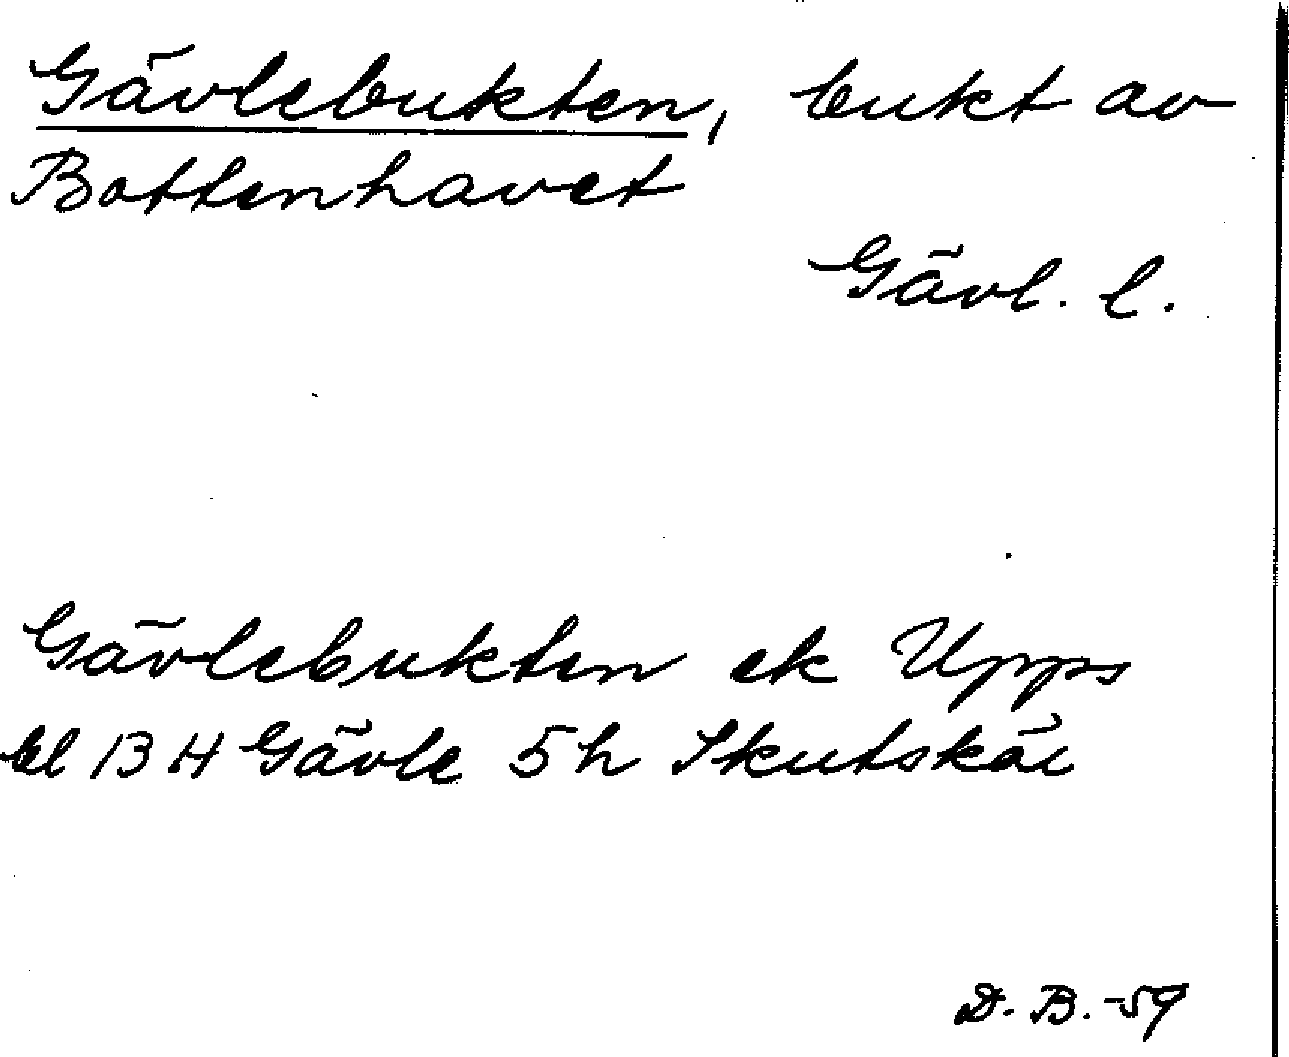 Gävlebukten, bukt av
Bottenhavet
Gävl. l.
Gävlebukten ek Upps
bl 13 H Gävle 5h Skutskär
D. B. -59